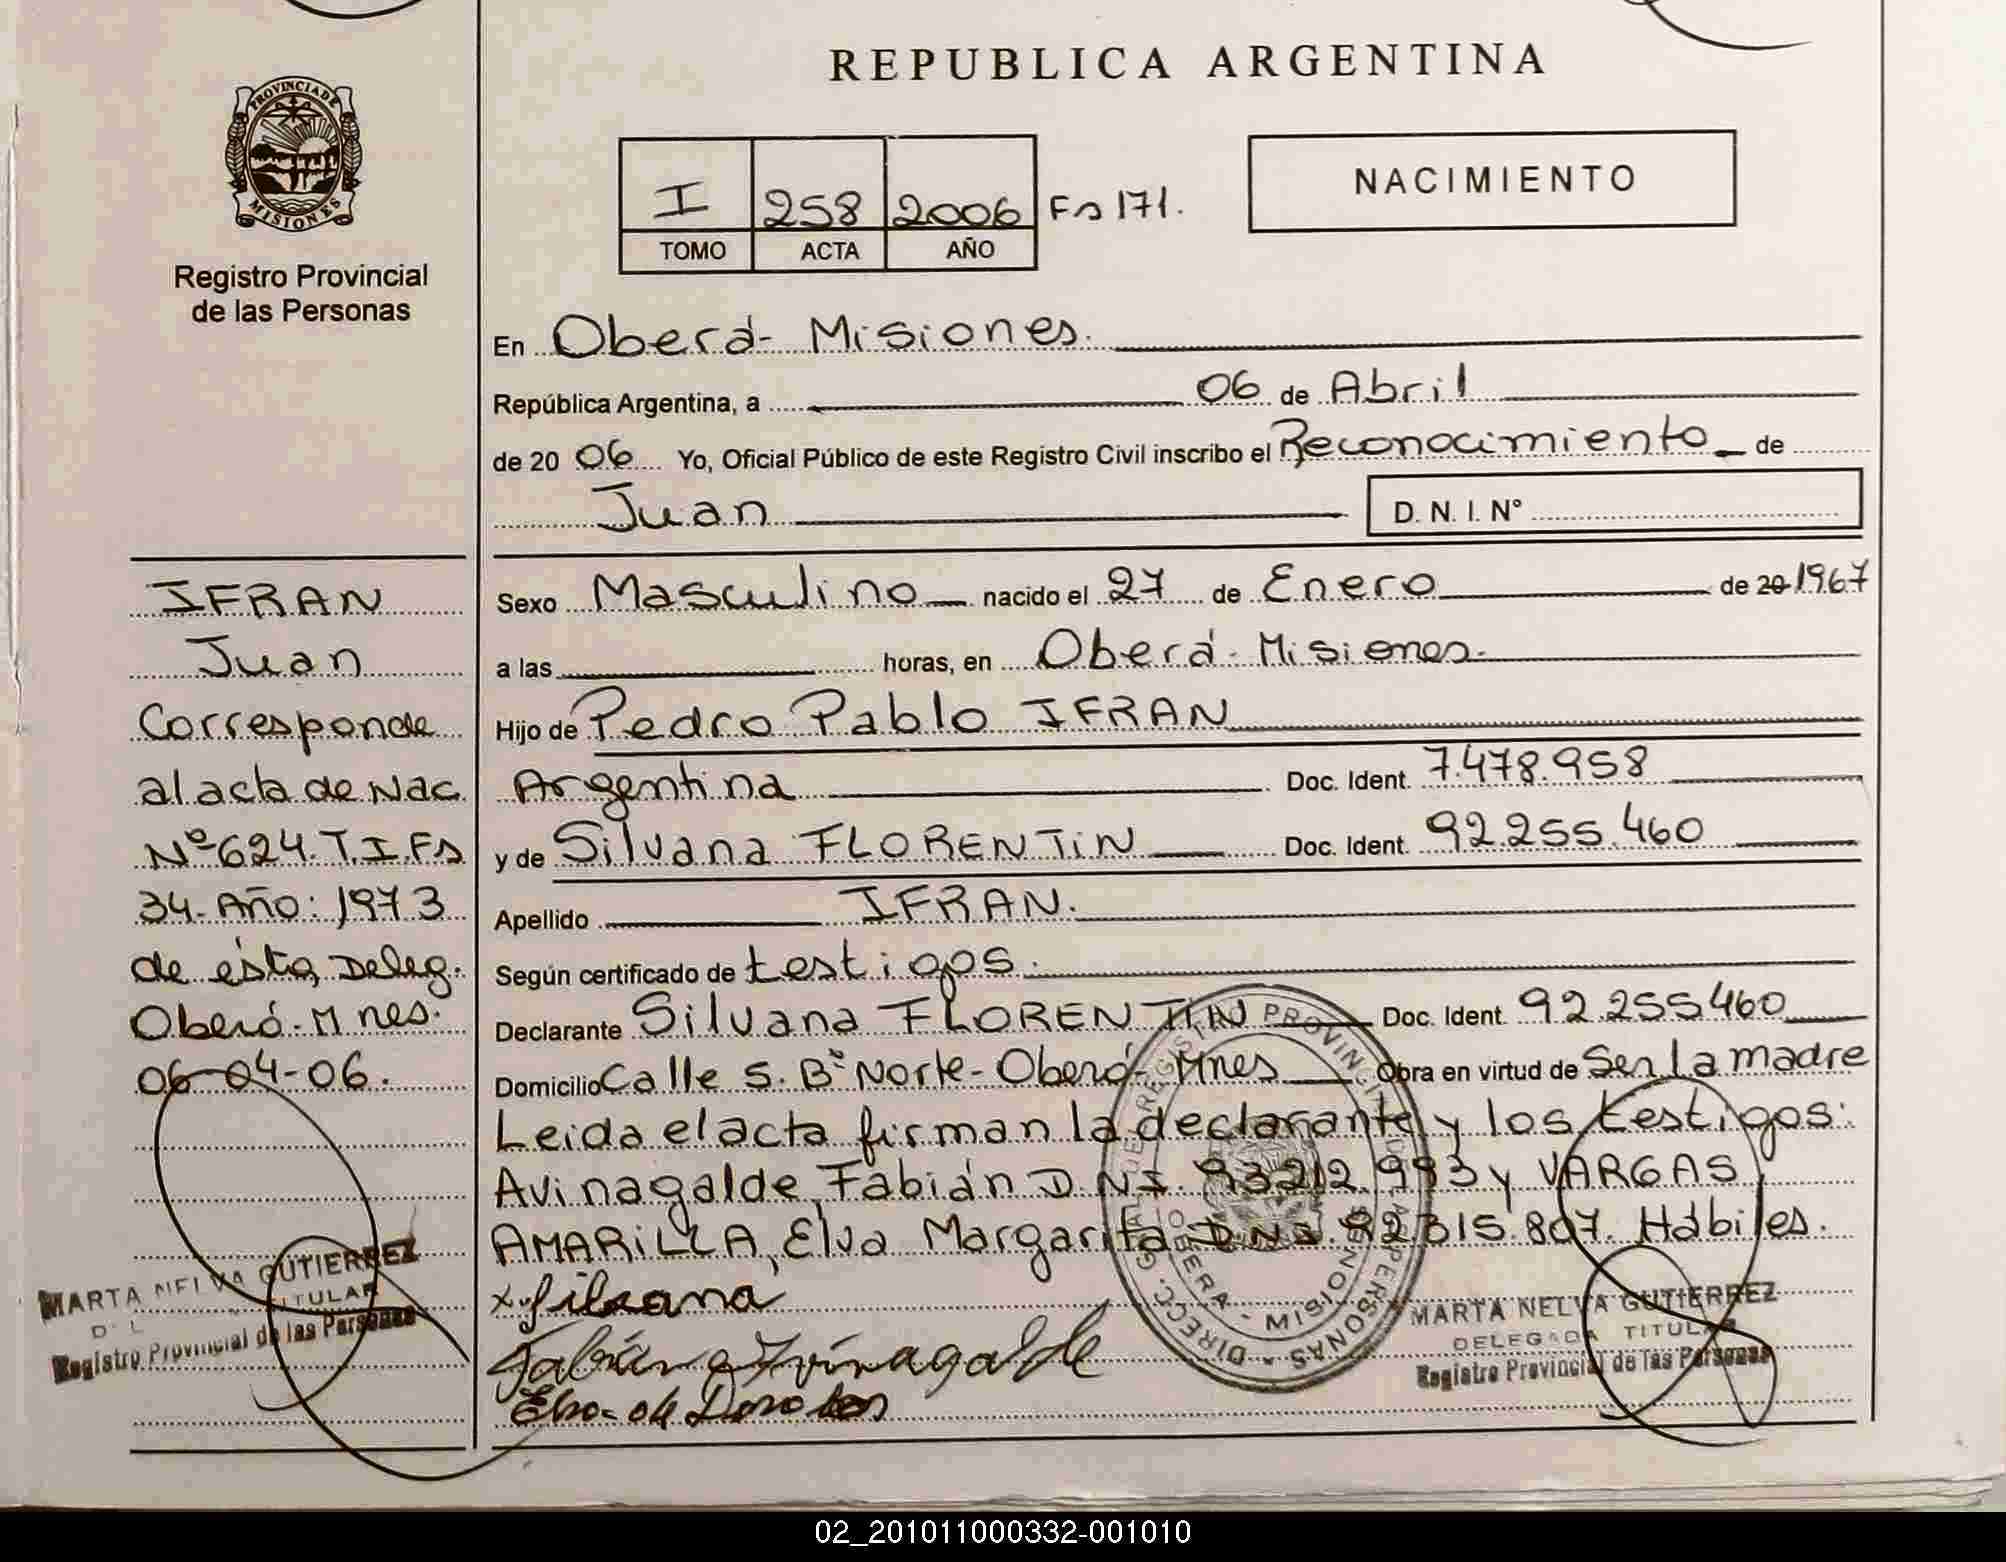 REPUBLICA ARGENTINA
PROVINCIA DE
MISIONES
Registro Provincial
de las Personas
I 258 2006 Fs 171.
TOMO ACTA AÑO
NACIMIENTO
En Oberá - Misiones.
República Argentina, a 06 de Abril
de 20 06 Yo, Oficial Público de este Registro Civil inscribo el Reconocimiento de
Juan
D. N. I. Nº
IFRAN
Juan
Corresponde
al acta de Nac.
Nº 624. T. I. Fs
34 - Año: 1973
de ésta, Deleg.
Oberá - Mnes.
06-04-06.
Sexo Masculino nacido el 27 de Enero de 20 1967
a las horas, en Oberá - Misiones.
Hijo de Pedro Pablo IFRAN
Argentina Doc. Ident. 7.478.958
y de Silvana FLORENTIN Doc. Ident. 92.255.460
Apellido IFRAN.
Según certificado de testigos.
Declarante Silvana FLORENTIN Doc. Ident. 92.255460
Domicilio Calle S. Bº Norte - Oberá - Mnes Obra en virtud de Ser la madre
Leida el acta firman la declarante y los testigos:
Avinagalde, Fabián D.NI. 93212.993 y VARGAS
AMARILLA, Elva Margarita D.N.I. 92.315.807. Hábiles.
x Silvana
Fabián Avinagalde
MARTA NELVA GUTIERREZ
TITULAR
Registro Provincial de las Personas
DIRECC. GRAL. DE REGISTRO PROVINCIAL DE LAS PERSONAS
OBERA - MISIONES
MARTA NELVA GUTIERREZ
DELEGADA TITULAR
Registro Provincial de las Personas
02_201011000332-001010